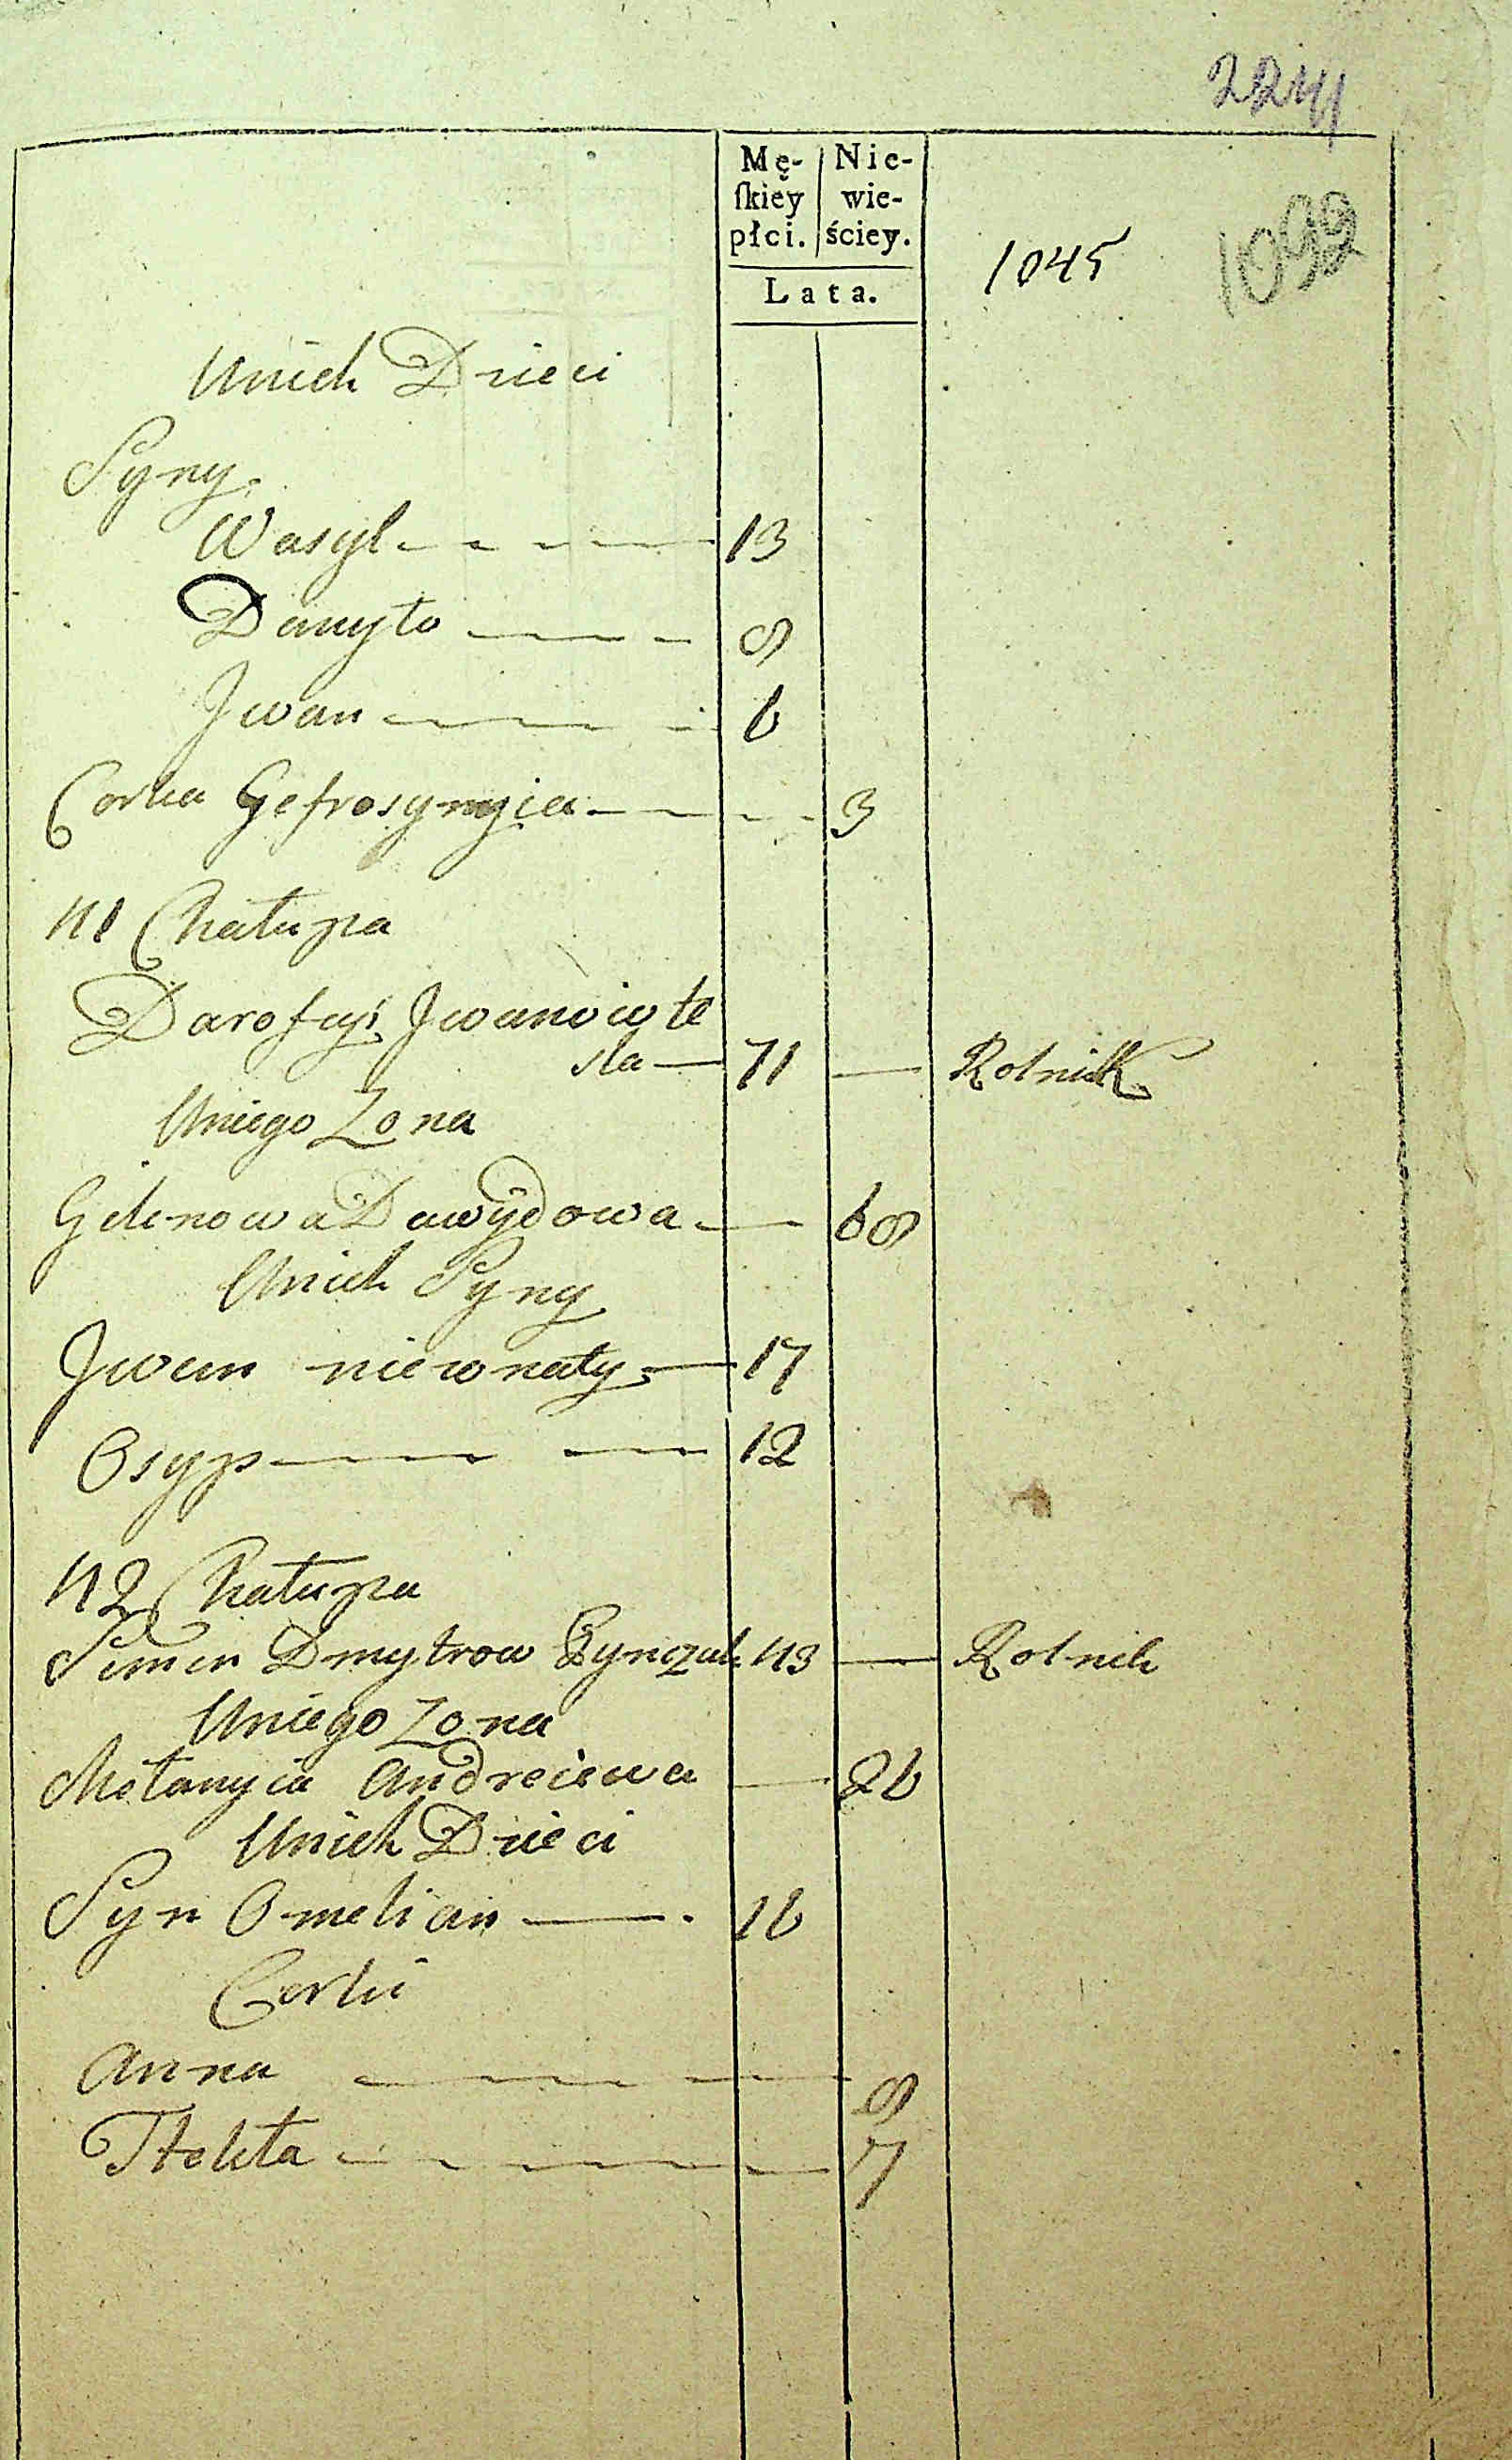 224
Mę-
skiey
płci.
Nie-
wie-
ściey.
Lata.
1045
1092
Unich Dzieci
Syny
Wasyl 13
Danyło 8
Jwan 6
Corka Gefrosynyia 3
41 Chałupa
Darofyi Jwanow te
sla 71 Rolnik
Uniego Zona
Gelenowa Dawydowa 68
Unich Syny
Jwan niewnaty 17
Osyp 12
42 Chałupa
Semen Dmytrow 43 Rolnik
Uniego Zona
Mełanyia Andreiewa 26
Unich Dzieci
Syn Omelian 16
Corki
Anna 8
Tekla 7